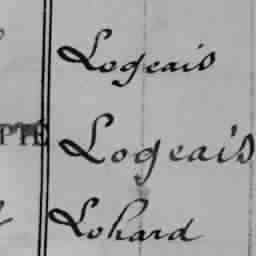 Logeais
PTE Logeais
Lohard